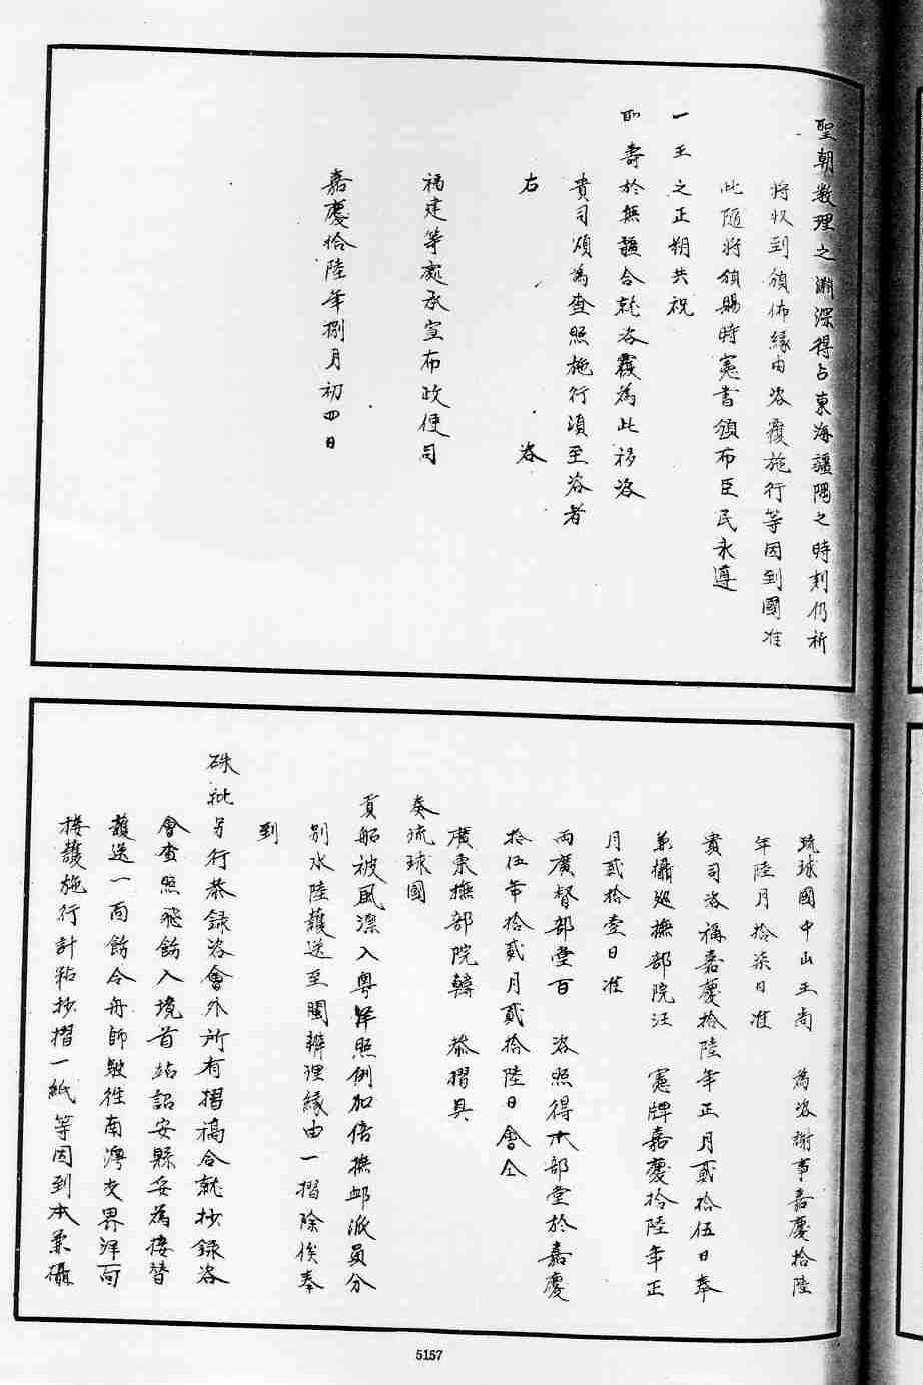 聖朝数理之淵深得占東海疆隅之時刻仍祈
将収到頒佈縁由咨覆施行等因到國准
此随将頒賜時憲書頒布臣民永遵
一王之正朔共祝
聖壽於無疆合就咨覆為此移咨
貴司煩為查照施行須至咨者
右 咨
福建等處承宣布政使司
嘉慶拾陸年捌月初四日
琉球國中山王尚 為咨謝事嘉慶拾陸
年陸月拾柒日准
貴司咨稱嘉慶拾陸年正月貳拾伍日奉
兼攝廵撫部院汪 憲牌嘉慶拾陸年正
月貳拾壹日准
両廣督部堂百 咨照得本部堂於嘉慶
拾伍年拾貳月貳拾陸日會仝
廣東撫部院韓 恭摺具
奏流球國
貢船被風漂入粤洋照例加倍撫卹派員分
別水陸護送至閩辦理縁由一摺除俟奉
到
硃批另行恭録咨會外所有摺稿合就抄録咨
會查照飛飭入境首站詔安縣妥為接替
護送一面飭令舟師駛往南澳交界洋面
接護施行計粘抄摺一紙等因到本兼攝
5157